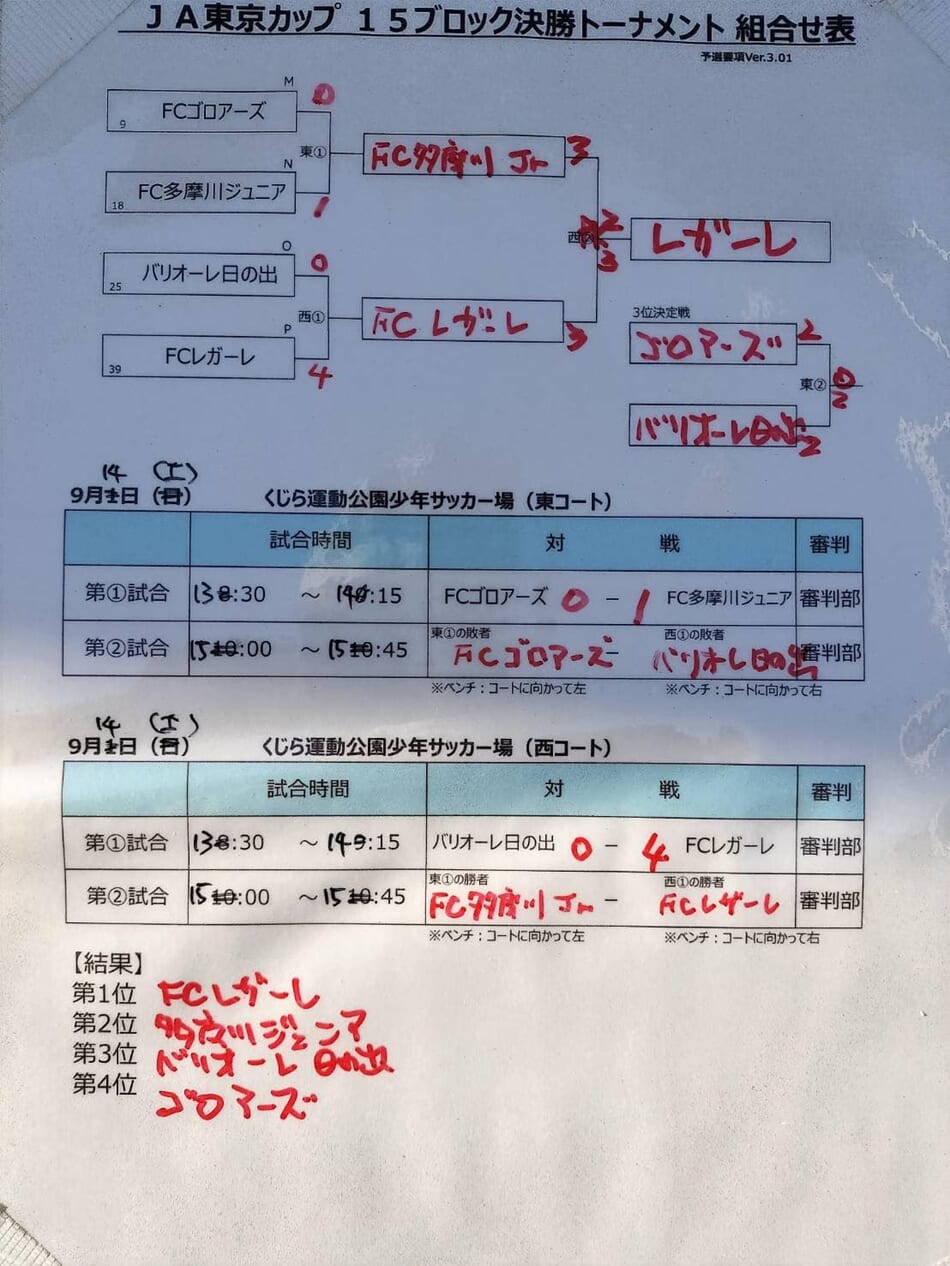 JA東京カップ 15ブロック決勝トーナメント 組合せ表
予選要項Ver.3.01
M
FCゴロアーズ 0
9
東①
FC多摩川 Jr 3
N
FC多摩川ジュニア
18
1
西②
2
3
レガーレ
O
バリオーレ日の出 0
25
西①
FC レガーレ
3
P
FCレガーレ
39
4
3位決定戦
ゴロアーズ 2
東②
0
2
バリオーレ日の出 2
14 (土)
9月日(日) くじら運動公園少年サッカー場(東コート)
試合時間 対 戦 審判
第①試合 13:30 ~ 14:15 FCゴロアーズ 0 - 1 FC多摩川ジュニア 審判部
東①の敗者 西①の敗者
第②試合 15:00 ~ 15:45 FCゴロアーズ - バリオーレ日の出 審判部
※ベンチ:コートに向かって左 ※ベンチ:コートに向かって右
14 (土)
9月日(日) くじら運動公園少年サッカー場(西コート)
試合時間 対 戦 審判
第①試合 13:30 ~ 14:15 バリオーレ日の出 0 - 4 FCレガーレ 審判部
東①の勝者 西①の勝者
第②試合 15:00 ~ 15:45 FC多摩川 Jr - FCレガーレ 審判部
※ベンチ:コートに向かって左 ※ベンチ:コートに向かって右
【結果】
第1位 FCレガーレ
第2位 多摩川ジュニア
第3位 バリオーレ 日の出
第4位 ゴロアーズ